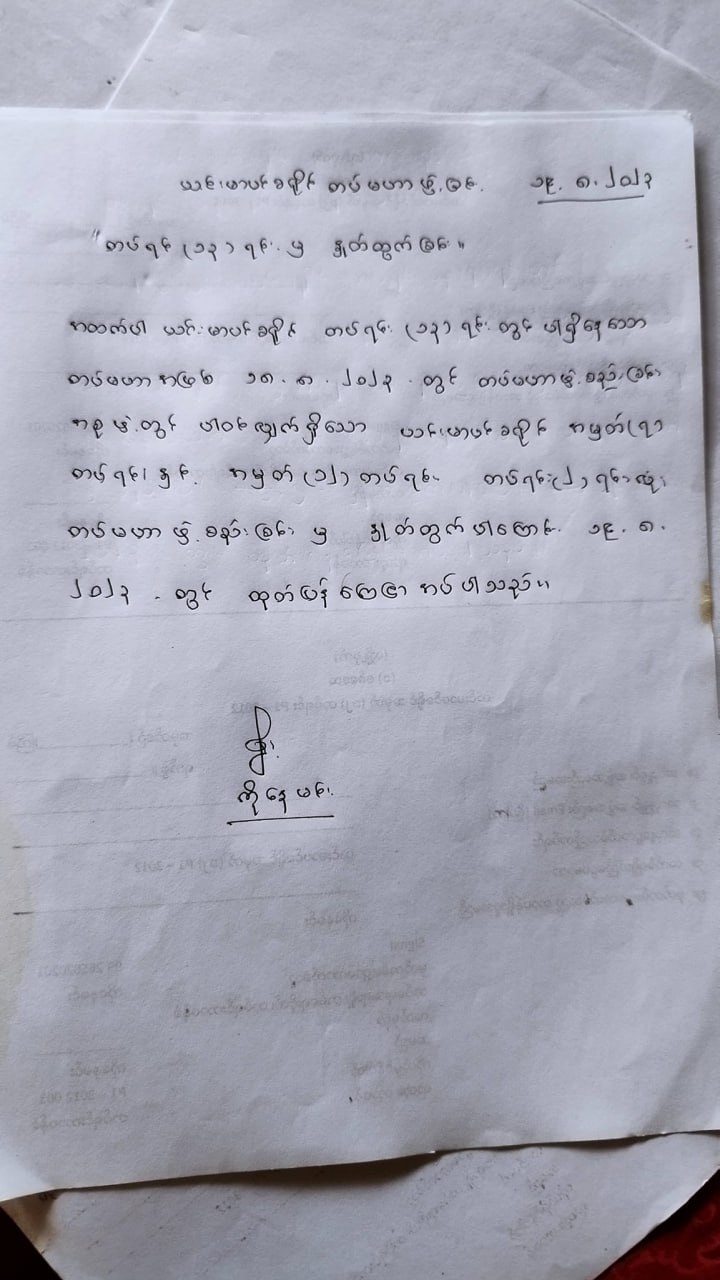 ယင်းမာပင်ခရိုင် တပ်မဟာဖွဲ့ခြင်း. ၁၉.၈.၂၀၂၃
"တပ်ရင်း (၁၃) ရင်း မှ နှုတ်ထွက်ခြင်း"
အထက်ပါ ယင်းမာပင်ခရိုင် တပ်ရင်း (၁၃) ရင်း တွင် ပါရှိနေသော
တပ်မဟာအဖြစ် ၁၈.၈.၂၀၂၃.တွင် တပ်မဟာဖွဲ့စည်းခြင်း
အစုဖွဲ့တွင် ပါဝင်လျှက်ရှိသော ယင်းမာပင်ခရိုင် အမှတ်(၇)
တပ်ရင်း နှင့် အမှတ် (၁၂) တပ်ရင်း တပ်ရင်း(၂)ရင်းလုံး
တပ်မဟာဖွဲ့စည်းခြင်း မှ နှုတ်ထွက်ပါကြောင်း ၁၉.၈.
၂၀၂၃.တွင် ထုတ်ပြန်ကြေငြာအပ်ပါသည်။
ကိုနေမင်း